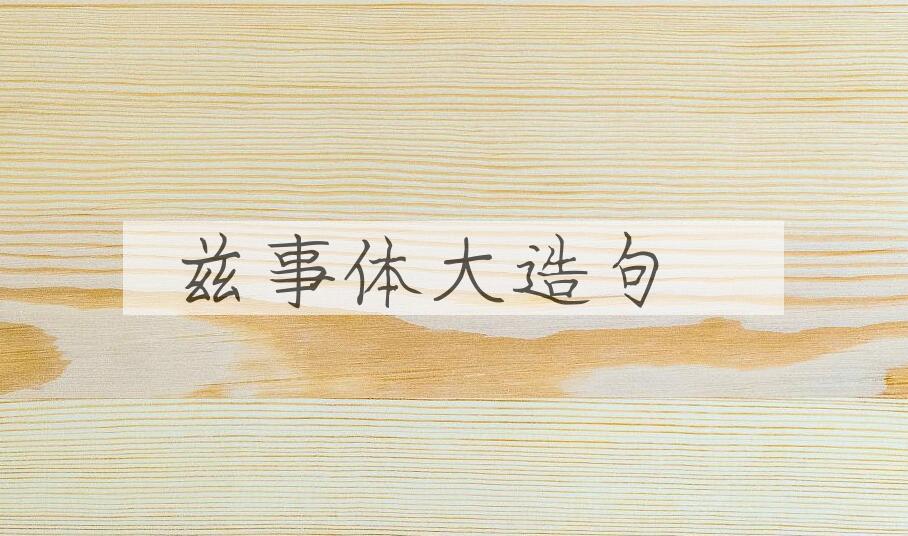 兹事体大造句